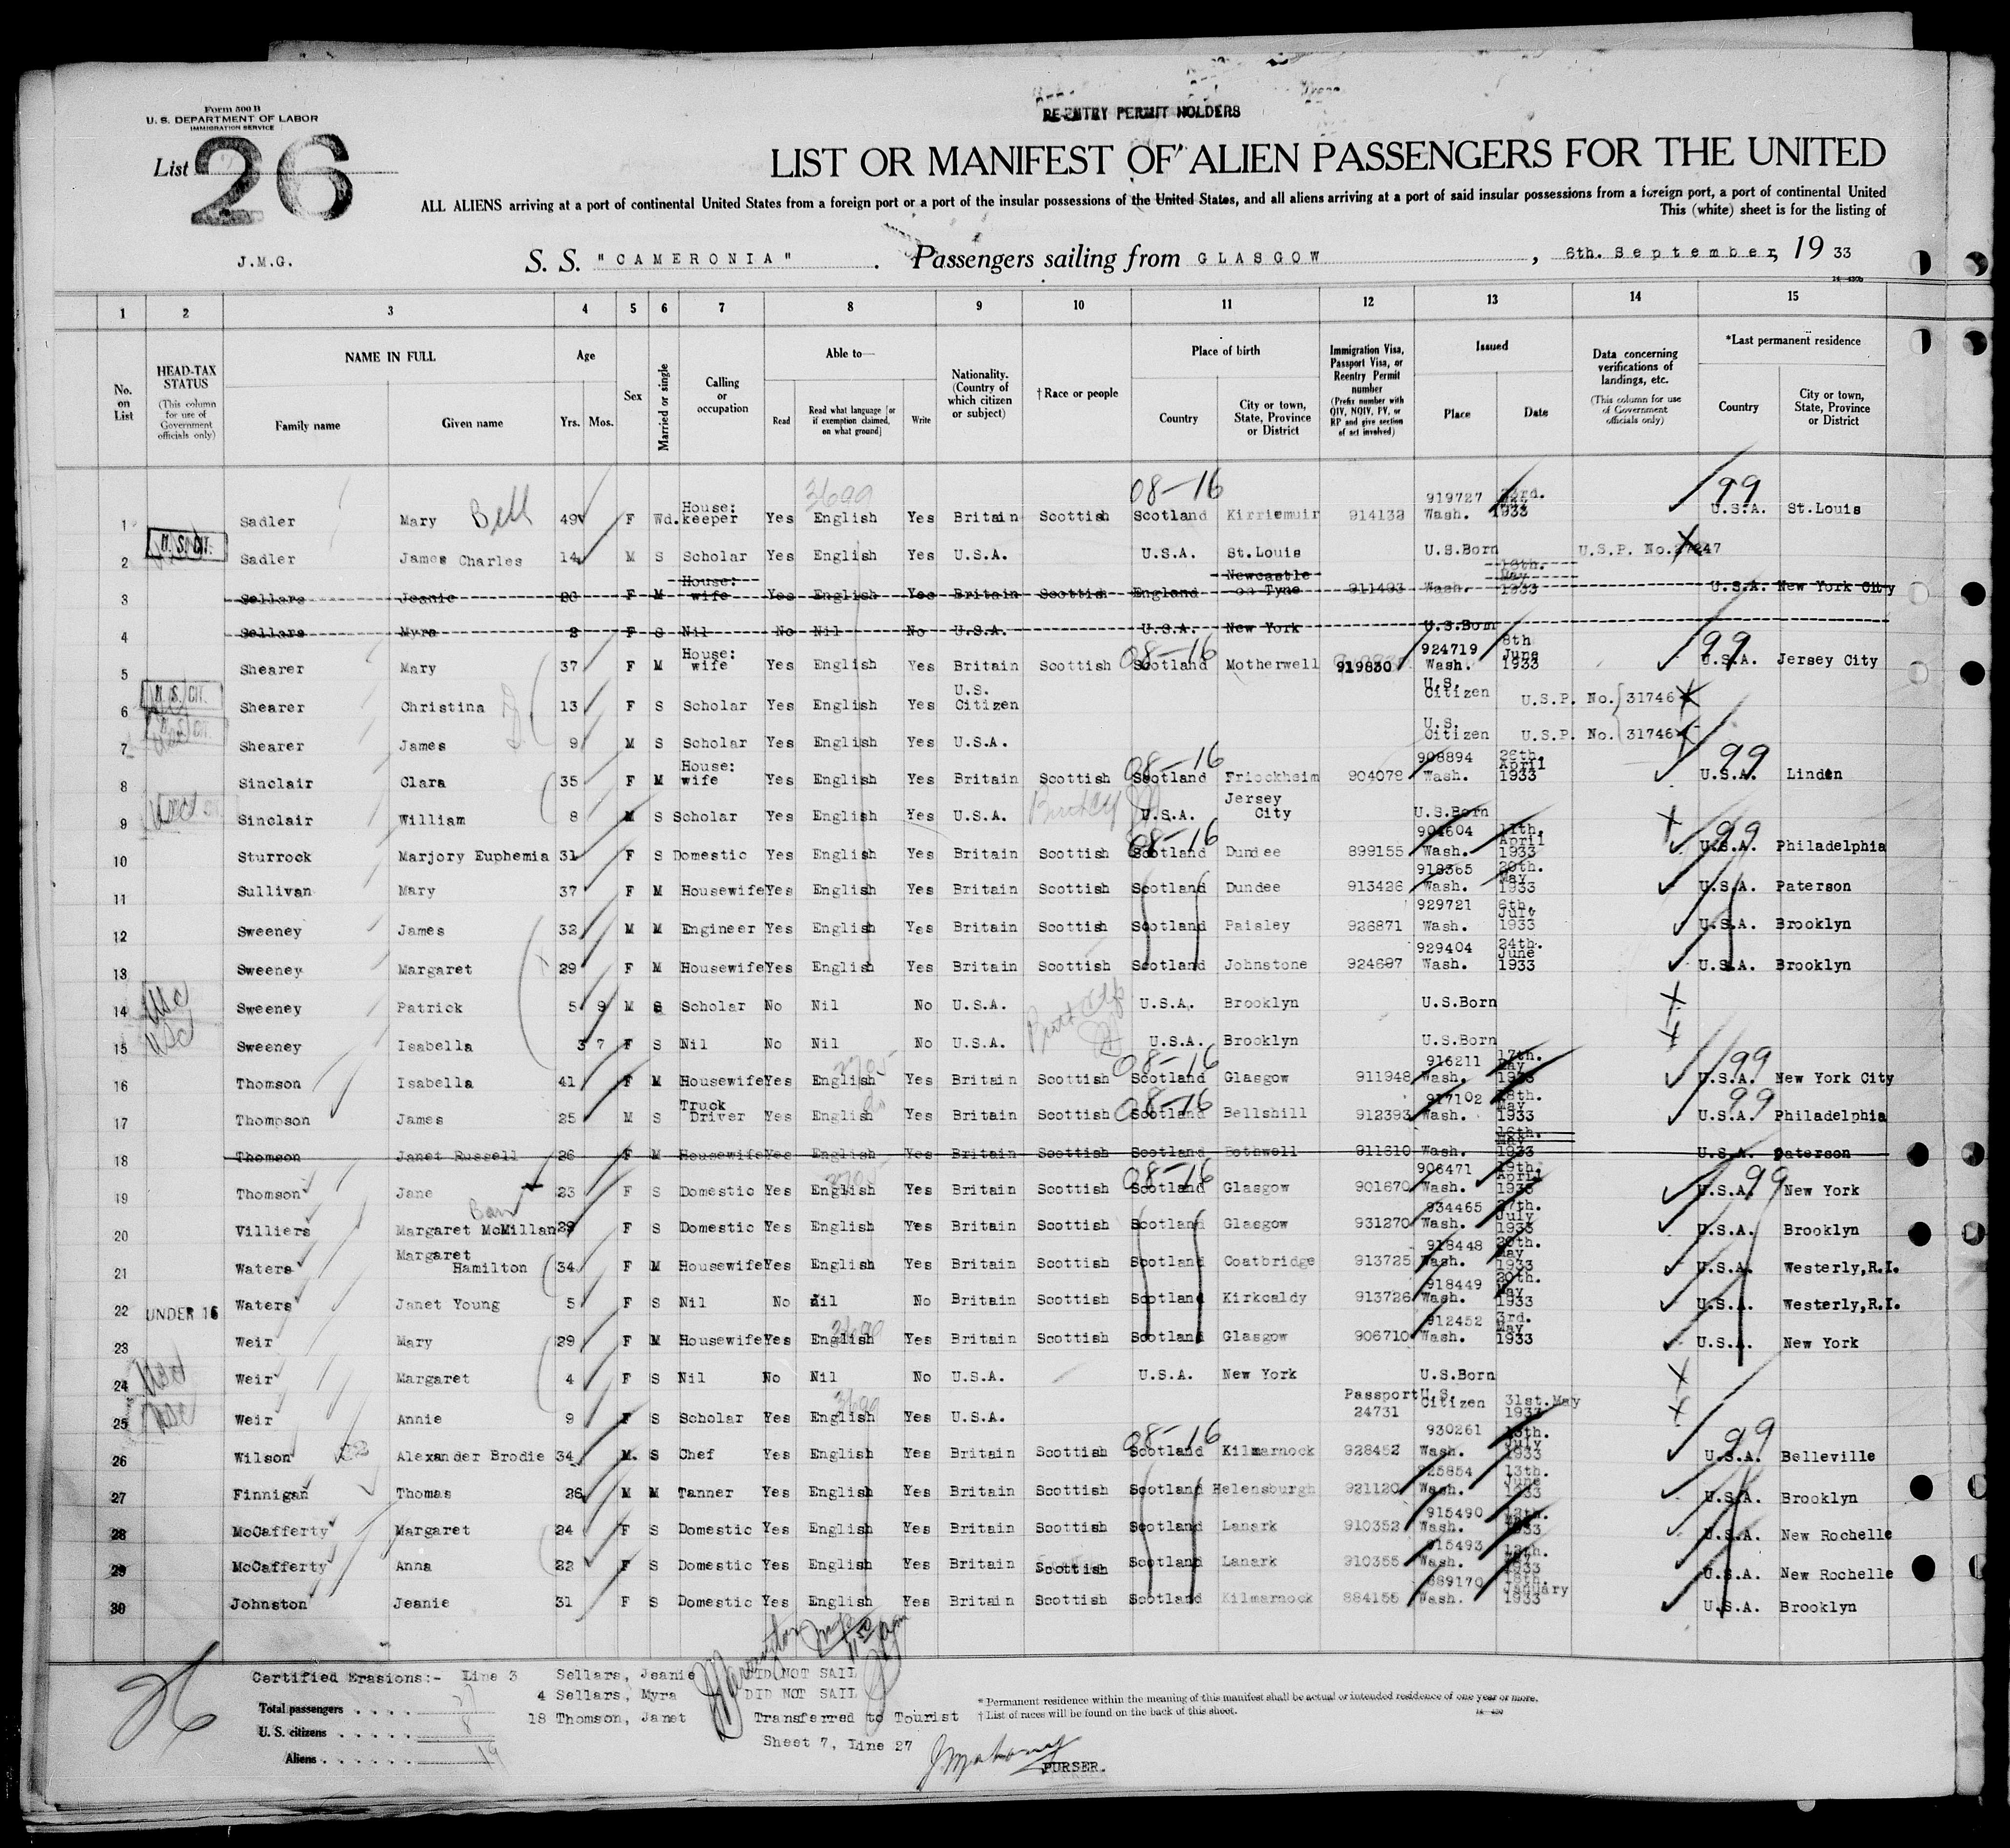 RE-ENTRY PERMIT HOLDERS
Form 500 B
U. S. DEPARTMENT OF LABOR
IMMIGRATION SERVICE
List 26
LIST OR MANIFEST OF ALIEN PASSENGERS FOR THE UNITED
ALL ALIENS arriving at a port of continental United States from a foreign port or a port of the insular possessions of the United States, and all aliens arriving at a port of said insular possessions from a foreign port, a port of continental United
This (white) sheet is for the listing of
J.M.G. S. S. "CAMERONIA" . Passengers sailing from GLASGOW , 6th. September, 19 33
1 2 3 4 5 6 7 8 9 10 11 12 13 14 15
No. on List
HEAD-TAX STATUS (This column for use of Government officials only)
NAME IN FULL Family name Given name
Age Yrs. Mos.
Sex
Married or single
Calling or occupation
Able to— Read Read what language [or if exemption claimed, on what ground] Write
Nationality. (Country of which citizen or subject)
† Race or people
Place of birth Country City or town, State, Province or District
Immigration Visa, Passport Visa, or Reentry Permit number (Prefix number with QIV, NQIV, PV, or RP and give section of act involved)
Issued Place Date
Data concerning verifications of landings, etc. (This column for use of Government officials only)
*Last permanent residence Country City or town, State, Province or District
1 Sadler Mary Bell 49 F Wd. House: keeper Yes English 3699 Yes Britain Scottish 08-16 Scotland Kirriemuir 914132 919727 Wash. 1933 99 U.S.A. St.Louis
2 U.S. CIT. Sadler James Charles 14 M S Scholar Yes English Yes U.S.A. U.S.A. St.Louis U.S.Born U.S.P. No.
3 Sellars Jeanie F M House: wife Yes English Yes Britain Scottish England Newcastle on Tyne 911493 Wash. 18th. May 1933 U.S.A. New York City
4 Sellars Myra F S Nil No Nil No U.S.A. U.S.A. New York U.S.Born
5 Shearer Mary 37 F M House: wife Yes English Yes Britain Scottish 08-16 Scotland Motherwell 919830 924719 Wash. 8th June 1933 99 U.S.A. Jersey City
6 U.S. CIT. Shearer Christina 13 F S Scholar Yes English Yes U.S. Citizen U.S. Citizen U.S.P. No. 31746
7 U.S. CIT. Shearer James 9 M S Scholar Yes English Yes U.S.A. U.S. Citizen U.S.P. No. 31746
8 Sinclair Clara 35 F M House: wife Yes English Yes Britain Scottish 08-16 Scotland Friockheim 904078 908894 Wash. 26th. April 1933 99 U.S.A. Linden
9 USC Sinclair William 8 M S Scholar Yes English Yes U.S.A. U.S.A. Jersey City U.S.Born
10 Sturrock Marjory Euphemia 31 F S Domestic Yes English Yes Britain Scottish 08-16 Scotland Dundee 899155 904604 Wash. 11th. April 1933 99 U.S.A. Philadelphia
11 Sullivan Mary 37 F M Housewife Yes English Yes Britain Scottish Scotland Dundee 913426 918365 Wash. 20th. May 1933 U.S.A. Paterson
12 Sweeney James 32 M M Engineer Yes English Yes Britain Scottish Scotland Paisley 926871 929721 Wash. 6th. July 1933 U.S.A. Brooklyn
13 Sweeney Margaret 29 F M Housewife Yes English Yes Britain Scottish Scotland Johnstone 924697 929404 Wash. 24th. June 1933 U.S.A. Brooklyn
14 USC Sweeney Patrick 5 9 M S Scholar No Nil No U.S.A. U.S.A. Brooklyn U.S.Born
15 USC Sweeney Isabella 3 7 F S Nil No Nil No U.S.A. U.S.A. Brooklyn U.S.Born
16 Thomson Isabella 41 F M Housewife Yes English Yes Britain Scottish 08-16 Scotland Glasgow 911948 916211 Wash. 17th. May 1933 99 U.S.A. New York City
17 Thompson James 25 M S Truck Driver Yes English Yes Britain Scottish 08-16 Scotland Bellshill 912393 917102 Wash. 18th. May 1933 99 U.S.A. Philadelphia
18 Thomson Janet Russell 26 F M Housewife Yes English Yes Britain Scottish Scotland Bothwell 911610 Wash. 16th. May 1933 U.S.A. Paterson
19 Thomson Jane 23 F S Domestic Yes English Yes Britain Scottish 08-16 Scotland Glasgow 901670 906471 Wash. 19th. April 1933 99 U.S.A. New York
20 Villiers Margaret McMillan 29 F S Domestic Yes English Yes Britain Scottish Scotland Glasgow 931270 934465 Wash. 27th. July 1933 U.S.A. Brooklyn
21 Waters Margaret Hamilton 34 F M Housewife Yes English Yes Britain Scottish Scotland Coatbridge 913725 918448 Wash. 20th. May 1933 U.S.A. Westerly,R.I.
22 UNDER 16 Waters Janet Young 5 F S Nil No Nil No Britain Scottish Scotland Kirkcaldy 913726 918449 Wash. 20th. May 1933 U.S.A. Westerly,R.I.
23 Weir Mary 29 F M Housewife Yes English Yes Britain Scottish Scotland Glasgow 906710 912452 Wash. 3rd. May 1933 U.S.A. New York
24 USC Weir Margaret 4 F S Nil No Nil No U.S.A. U.S.A. New York U.S.Born
25 USC Weir Annie 9 F S Scholar Yes English 3699 Yes U.S.A. Passport 24731 U.S. Citizen 31st.May 1933
26 Wilson Alexander Brodie 34 M. S Chef Yes English Yes Britain Scottish 08-16 Scotland Kilmarnock 928452 930261 Wash. July 1933 99 U.S.A. Belleville
27 Finnigan Thomas 26 M M Tanner Yes English Yes Britain Scottish Scotland Helensburgh 921120 925854 Wash. 13th. June 1933 U.S.A. Brooklyn
28 McCafferty Margaret 24 F S Domestic Yes English Yes Britain Scottish Scotland Lanark 910352 915490 Wash. 12th. 1933 U.S.A. New Rochelle
29 McCafferty Anna 22 F S Domestic Yes English Yes Britain Scottish Scotland Lanark 910355 915493 Wash. 12th. 1933 U.S.A. New Rochelle
30 Johnston Jeanie 31 F S Domestic Yes English Yes Britain Scottish Scotland Kilmarnock 884155 889170 Wash. 18th. January 1933 U.S.A. Brooklyn
26
Certified Erasions:- Line 3 Sellars, Jeanie DID NOT SAIL
4 Sellars, Myra DID NOT SAIL
18 Thomson, Janet Transferred to Tourist
Sheet 7, Line 27
Total passengers . . . . 27
U. S. citizens . . . . . 8
Aliens . . . . . . 19
* Permanent residence within the meaning of this manifest shall be actual or intended residence of one year or more.
† List of races will be found on the back of this sheet.
PURSER.